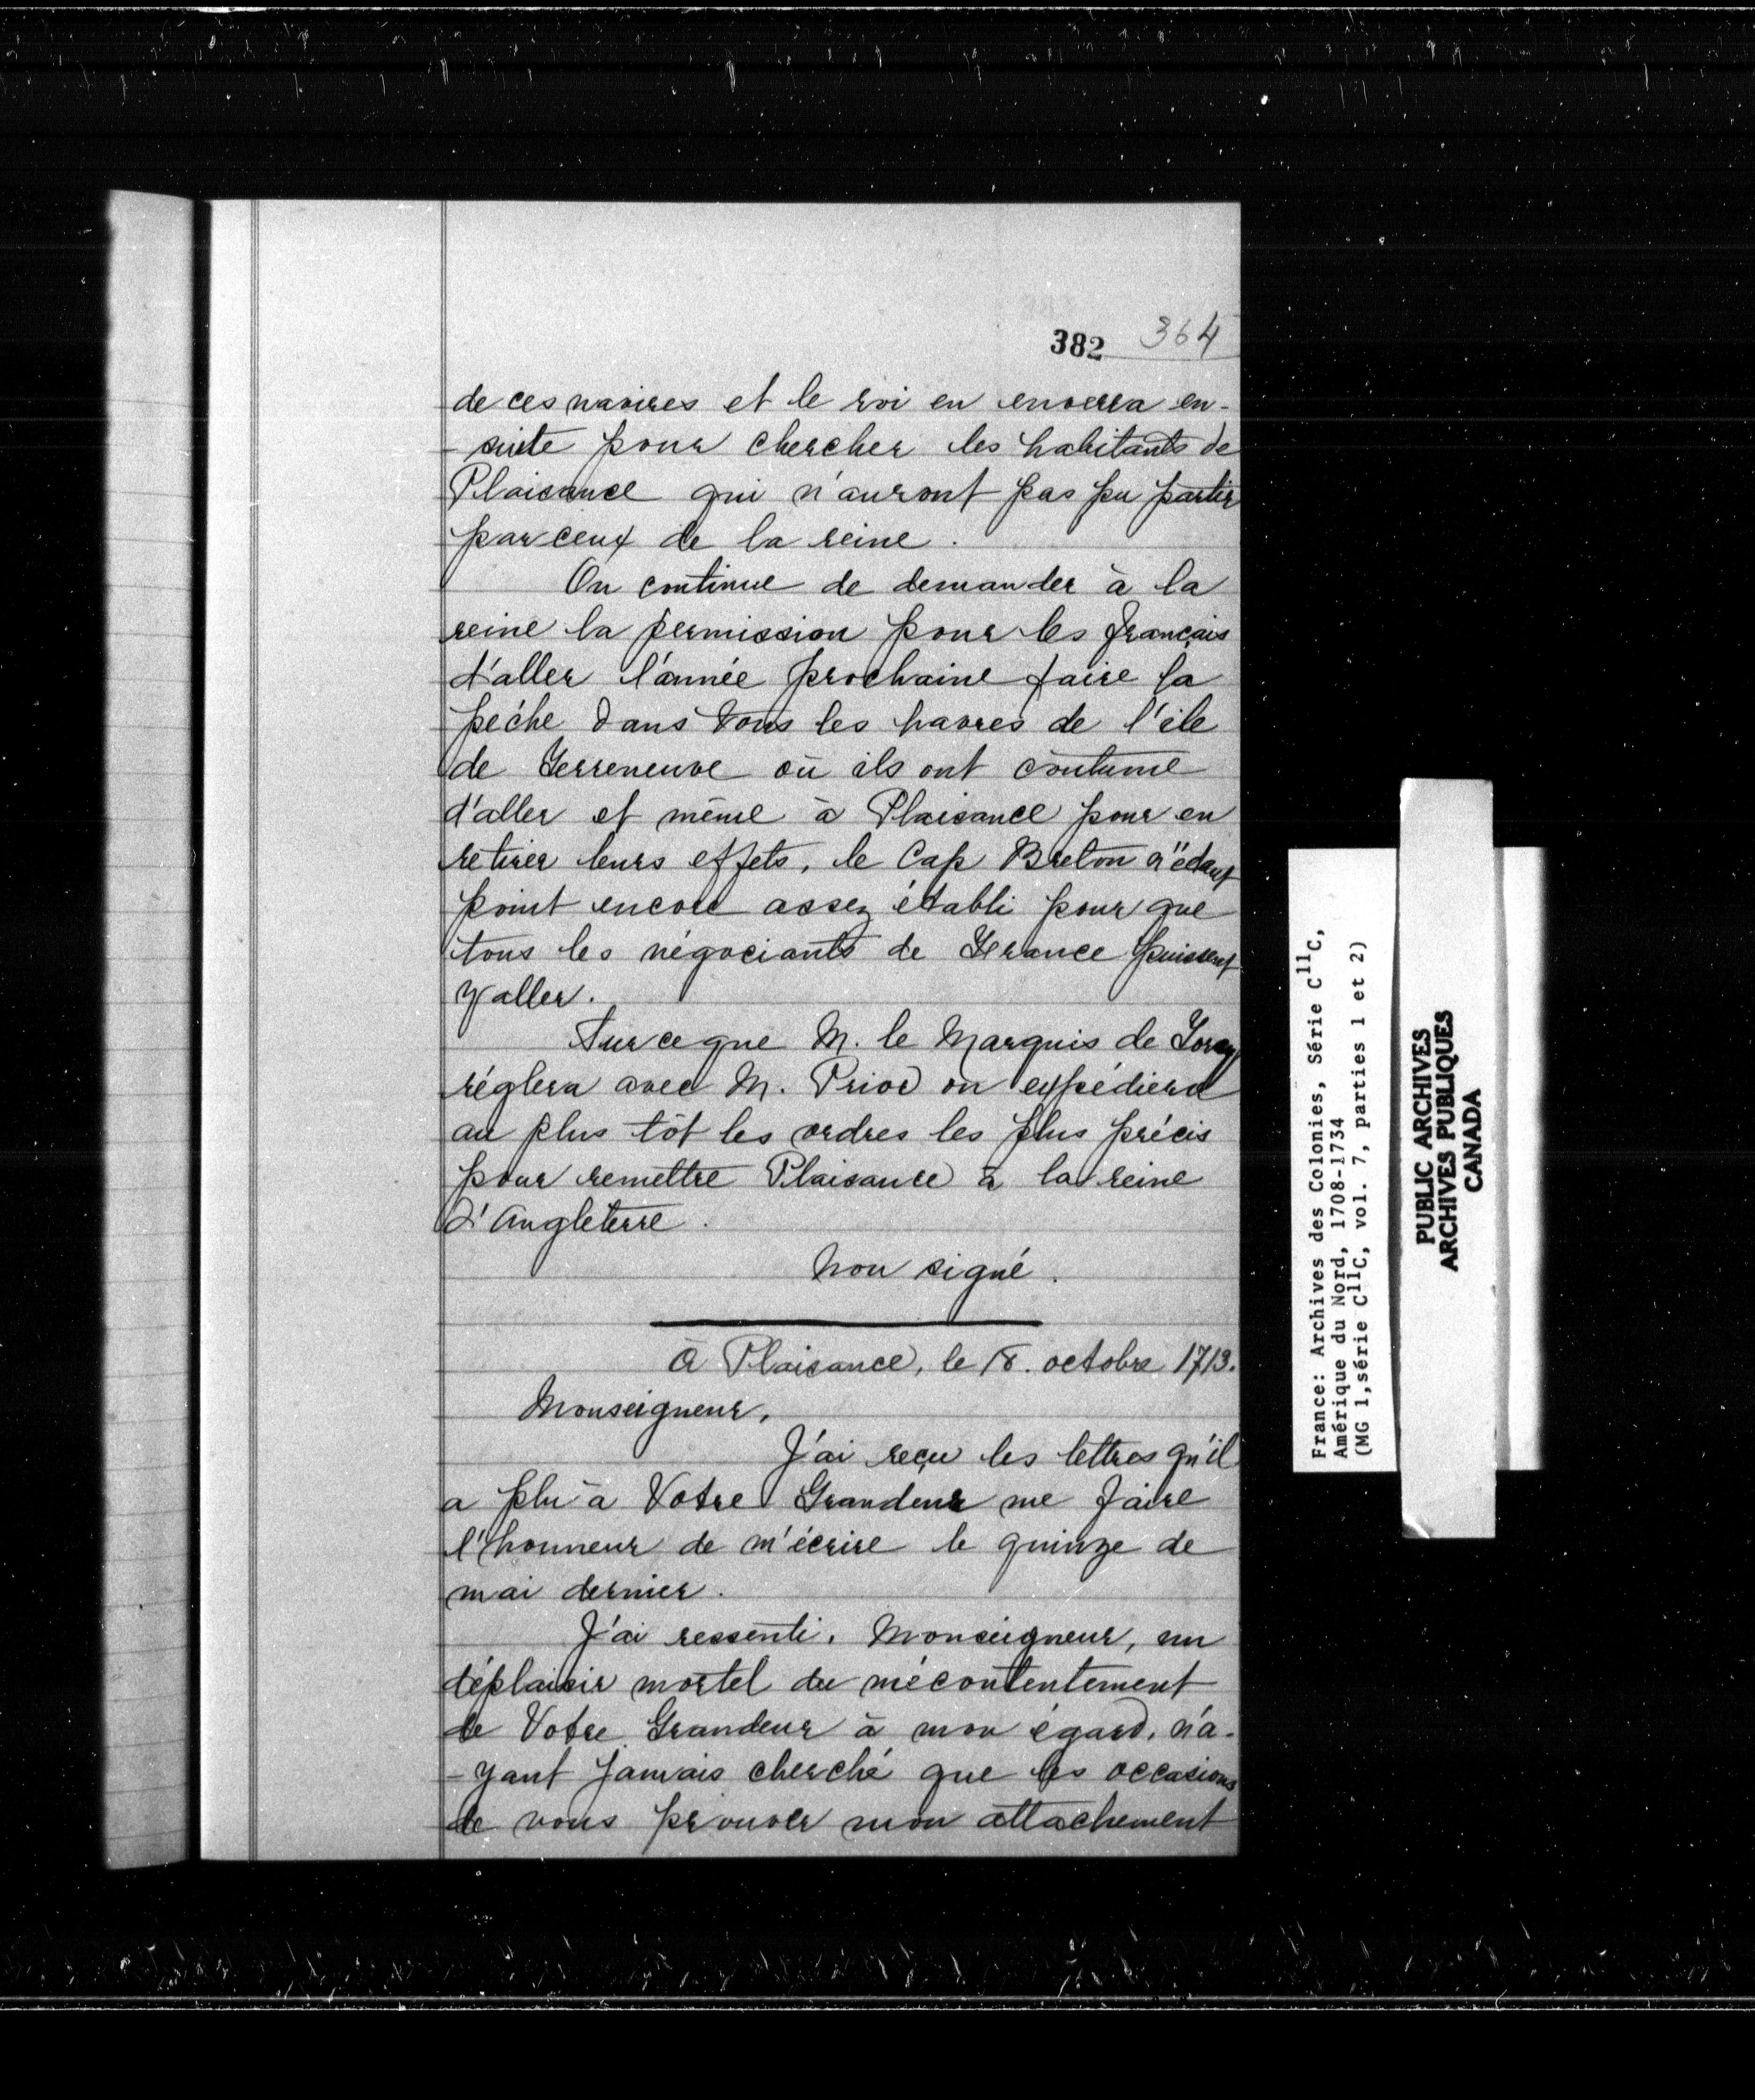 382 364
de ces navires et le roi en enverra en-
-suite pour chercher les habitants de
Plaisance qui n'auront pas pu partir
par ceux de la reine.
On continue de demander à la
reine la permission pour les français
d'aller l'année prochaine faire la
pêche dans tous les havres de l'île
de Terreneuve où ils ont coutume
d'aller et même à Plaisance pour en
retirer leurs effets, le Cap Breton n'étant
point encore assez établi pour que
tous les négociants de France puissent
y aller.
Sur ce que M. le Marquis de Torcy
réglera avec M. Prior on expédiera
au plus tôt les ordres les plus précis
pour remettre Plaisance à la reine
d'Angleterre.
Non signé.
à Plaisance, le octobre 1713.
Monseigneur,
J'ai reçu les lettres qu'il
a plu à Votre Grandeur me faire
l'honneur de m'écrire le quinze de
mai dernier.
J'ai ressenti, Monseigneur, un
déplaisir mortel du mécontentement
de Votre Grandeur à mon égard, n'a-
-yant jamais cherché que les occasions
de vous prouver mon attachement
France: Archives des Colonies, Série C11C,
Amérique du Nord, 1708-1734
(MG 1,série C11C, vol. 7, parties 1 et 2)
PUBLIC ARCHIVES
ARCHIVES PUBLIQUES
CANADA